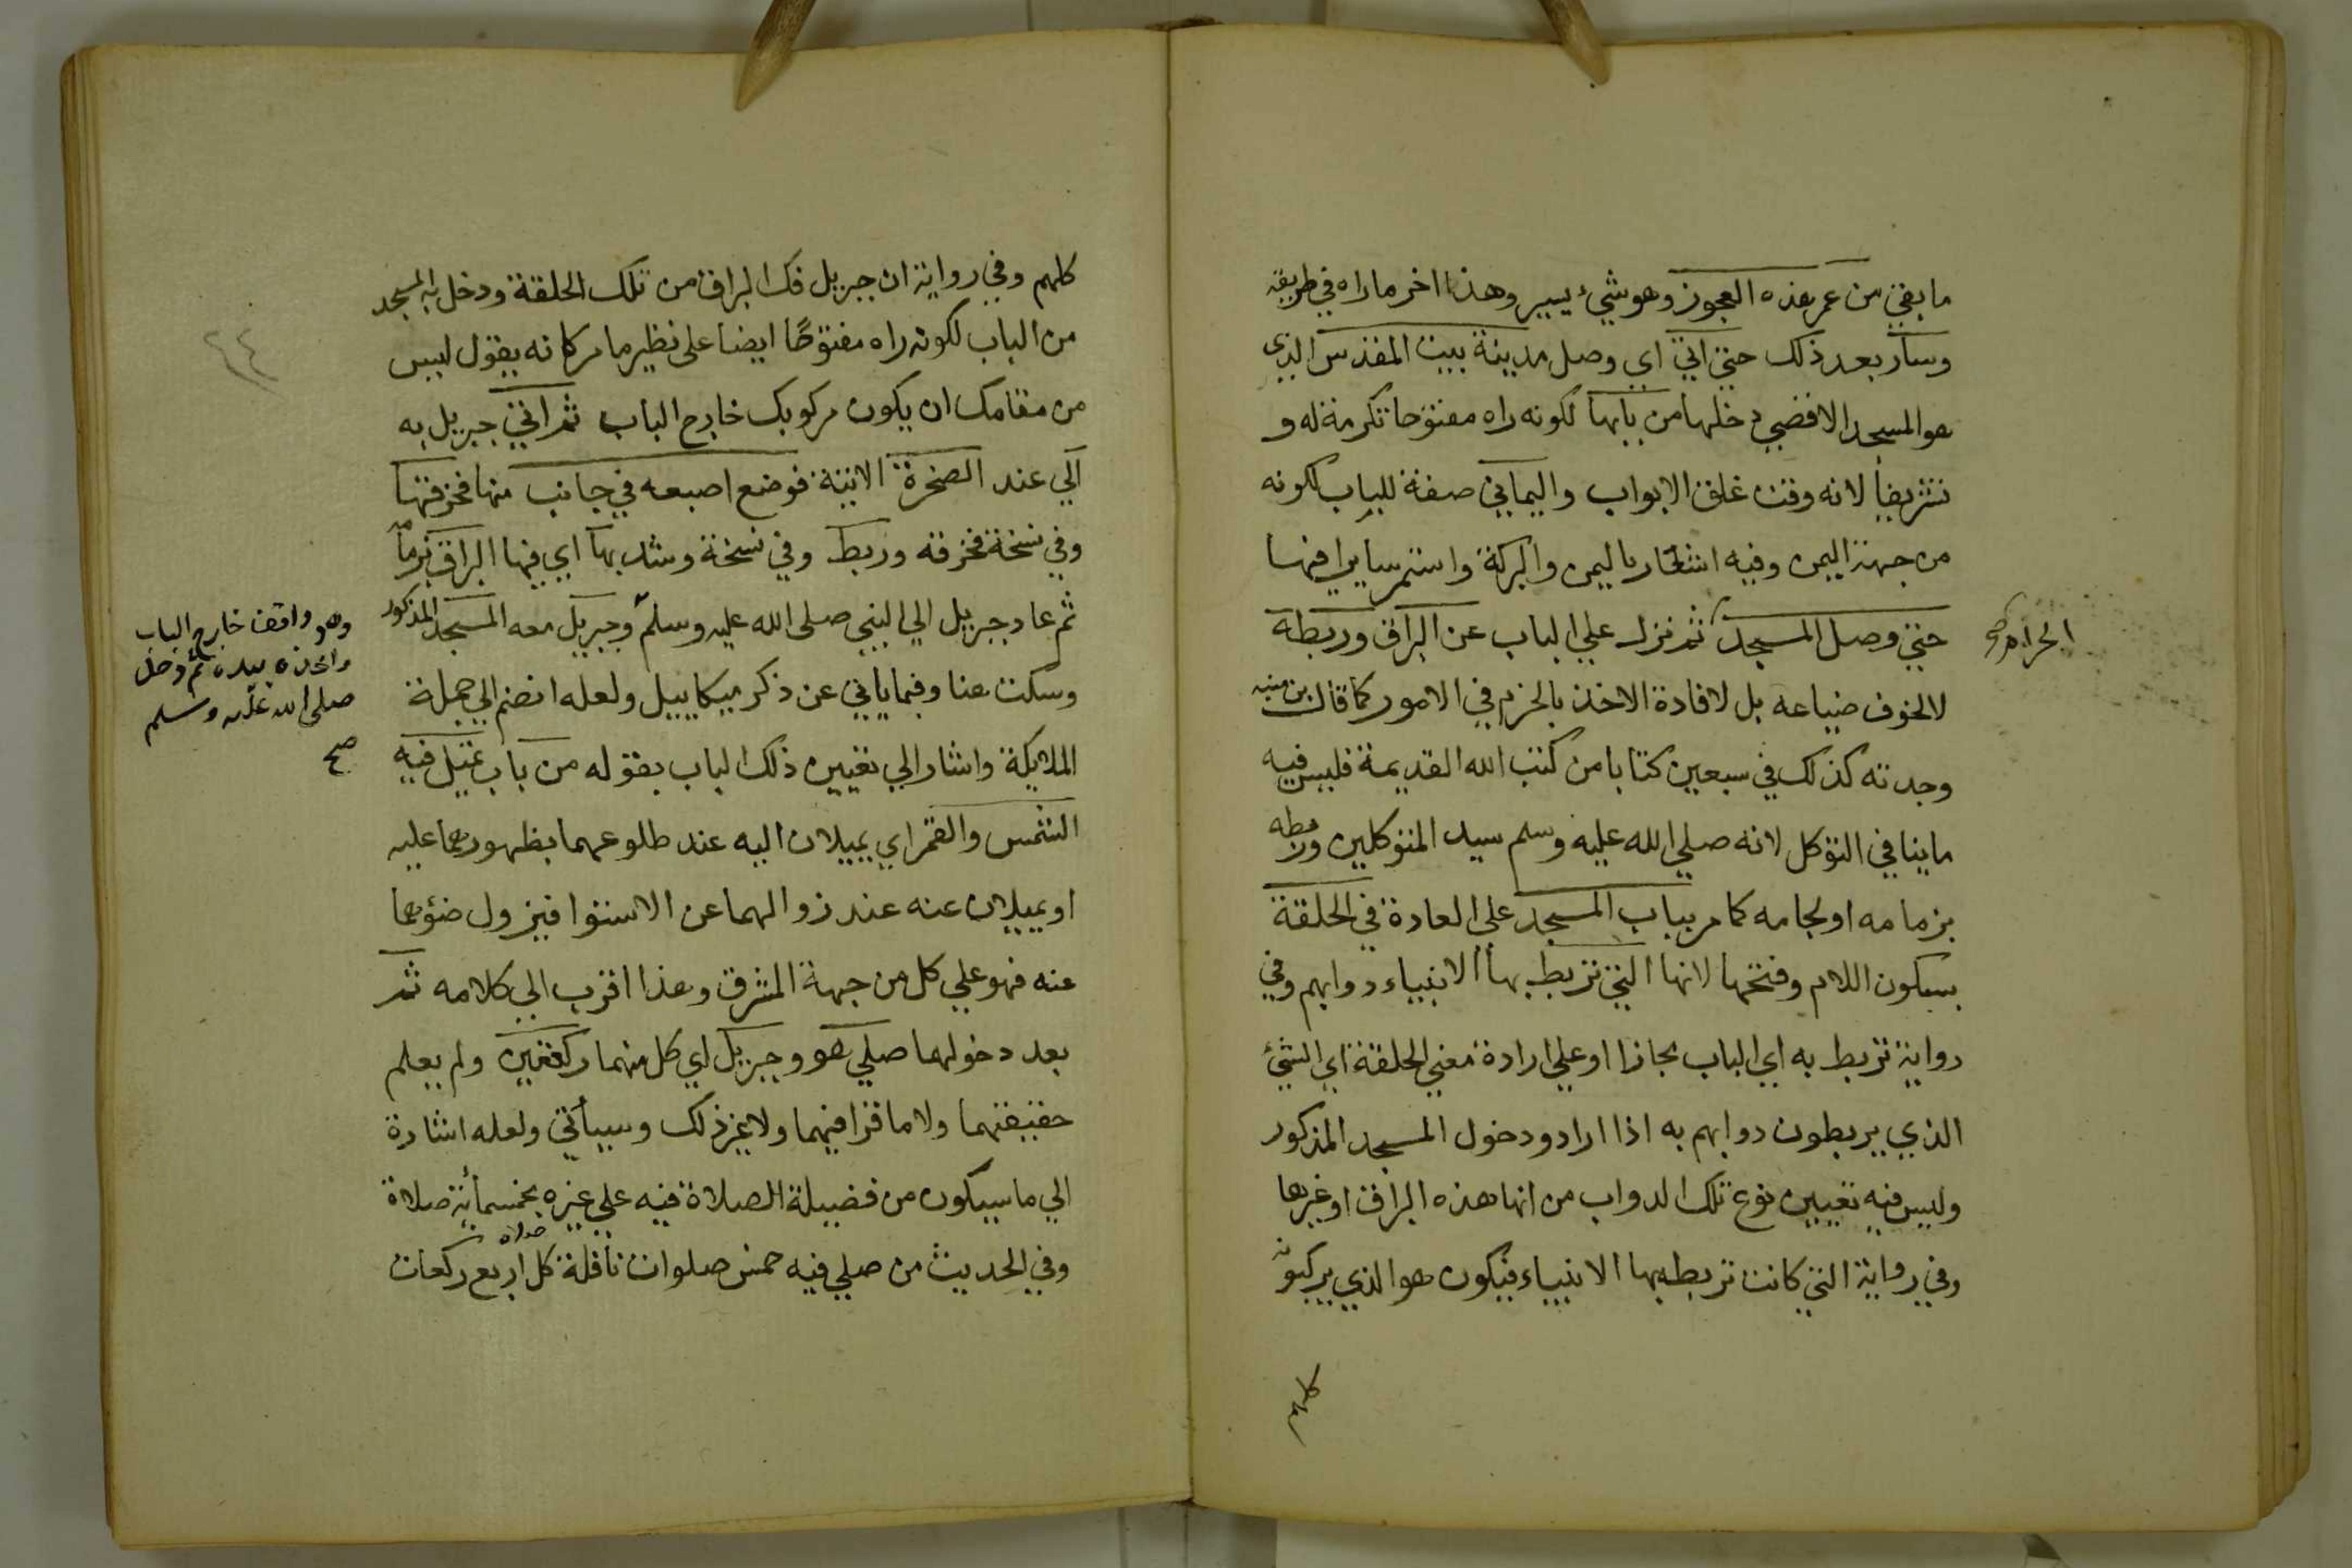 ما بقي من عمر هذه العجوز وهو شيء يسير وهذا اخر ماراه في طريقه
وسار بعد ذلك حتي اتي اي وصل مدينة بيت المقدس الذي
هو المسجد الاقصي دخلها من بابها لكونه راه مفتوحا تكرمة له و
تشريفا لانه وقت غلق الابواب واليماني صفة للباب لكونه
من جهة اليمن وفيه اشعار باليمن والبركة واستمر سايرا فيها
حتي وصل المسجد ثم نزل علي الباب عن البراق وربطه
الحرام صح
لا لخوف ضياعه بل لافادة الاخذ بالحزم في الامور كما قال بن منبه
وجدته كذلك في سبعين كتابا من كتب الله القديمة فليس فيه
ما ينافي التوكل لانه صلي الله عليه وسلم سيد المتوكلين وربطه
بزمامه او لجامه كما مر بباب المسجد علي العادة في الحلقة
بسكون اللام وفتحها لانها التي تربط بها الانبياء دوابهم وفي
رواية تربط به اي الباب مجازا او علي ارادة معني الحلقة اي الشيء
الذي يربطون دوابهم به اذا ارادو دخول المسجد المذكور
وليس فيه تعيين نوع تلك الدواب من انها هذه البراق او غيرها
وفي رواية التي كانت تربطه بها الانبياء فيكون هو الذي يركبونه
كلهم
٢٤
كلهم وفي رواية ان جبريل فك البراق من تلك الحلقة ودخل به المسجد
من الباب لكونه راه مفتوحًا ايضا علي نظير ما مر كانه يقول ليس
من مقامك ان يكون مركوبك خارج الباب ثم اتي جبريل به
الي عند الصخرة الاتية فوضع اصبعه في جانب منها فخرقتها
وفي نسخة فخرقه وربط وفي نسخة وشد بها اي فيها البراق بزمامه
ثم عاد جبريل الي النبي صلي الله عليه وسلم وجبريل معه المسجد المذكور
وهو واقف خارج الباب
واخذه بيده ثم دخل
صلي الله عليه وسلم
صح
وسكت هنا وفيما ياتي عن ذكر ميكاييل ولعله انضم الي جملة
الملايكة واشار الي تعيين ذلك الباب بقوله من باب تميل فيه
الشمس والقمر اي يميلان اليه عند طلوعهما بظهورهما عليه
او يميلان عنه عند زوالهما عن الاستوا فيزول ضوءهما
عنه فهو علي كل من جهة المشرق وهذا اقرب الي كلامه ثم
بعد دخولهما صلي هو وجبريل اي كل منهما ركعتين ولم يعلم
حقيقتهما ولا ما قرا فيهما ولا غير ذلك وسيأتي ولعله اشارة
الي ما سيكون من فضيلة الصلاة فيه علي غيره بخمسمأئة صلاة
وفي الحديث من صلي فيه خمس صلوات نافلة كل صلاة اربع ركعات